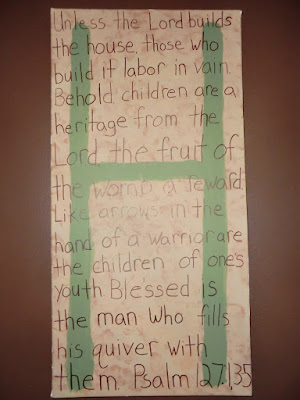 Unless the Lord builds
the house, those who
build it labor in vain.
Behold children are a
heritage from the
Lord the fruit of
the womb a reward
Like arrows in the
hand of a warrior are
the children of one's
youth Blessed is
the man who fills
his quiver with
them Psalm 127:1,35